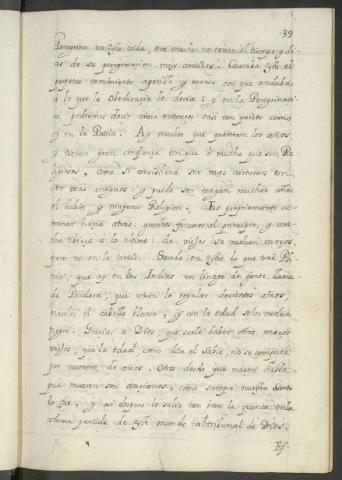 39
Peregrino en esta vida, era mucho no tener el tiempo, y di-
as de su peregrinacion muy contados. Causaba esto el
perpetuo rendimiento apacible y manso con que andaba
à lo que la Obediencia le decia: y en la Peregrinaci-
on podremos decir vivia entonces casi tan quieto como
y en la Patria. Ay muchos que quentan los años
y tienen gran confianza en que à mucho que son Re-
ligiosos, como si consistiera ser mas virtuosos en
ser mas antiguos y puede ser tengan muchos años
el habito y ninguno Religion. Es propriamente ca-
minar hàzia atras: grandes fervores al principio, y mu-
cha tibieza à lo ultimo: de viejos se vuelven mozos,
pero no en la virtud. Sucede en esto lo que trae Pli-
nio, que ay en las Indias un linage de gente llama-
da Pandora, que viven de regular docientos años,
nacen el cabello blanco, y con la edad se les vuelve
negro. Gracias à Dios, que suele haber otros mozos
viejos, que la edad como dice el Sabio, no se computa
por numero de años. Otros desde que nacen hasta
que mueren son ancianos, como siempre nuestro Santo
lo fue, y asi despues le salió tan bien la quenta en la
ultima partida de este mundo al tribunal de Dios.
Es-